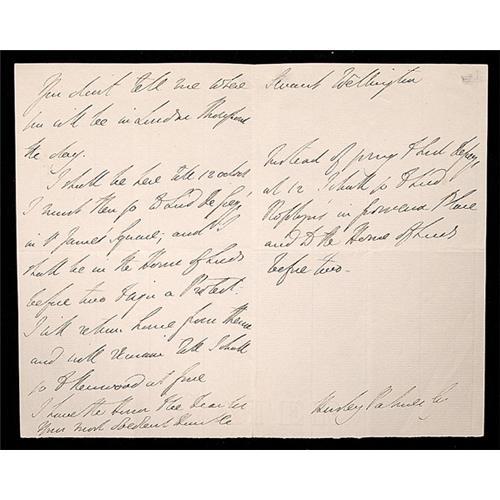 You don't tell me where
you will be in London throughout
the day.
I shall be here till 12 oclock
I must then go to Lord
in St James Square; and I
shall be in the House of Lords
before two to sign a Protest.
I will return home from thence
and will remain till I shall
go to Kenwood at five
I have the honor to be Dear Sir
Your most obedient Servant
Servant Wellington
Instead of going to Lord
at 12 I shall go to Lord
in Grosvenor Place
and to the House of Lords
before two -
Horsley Palmer Esq